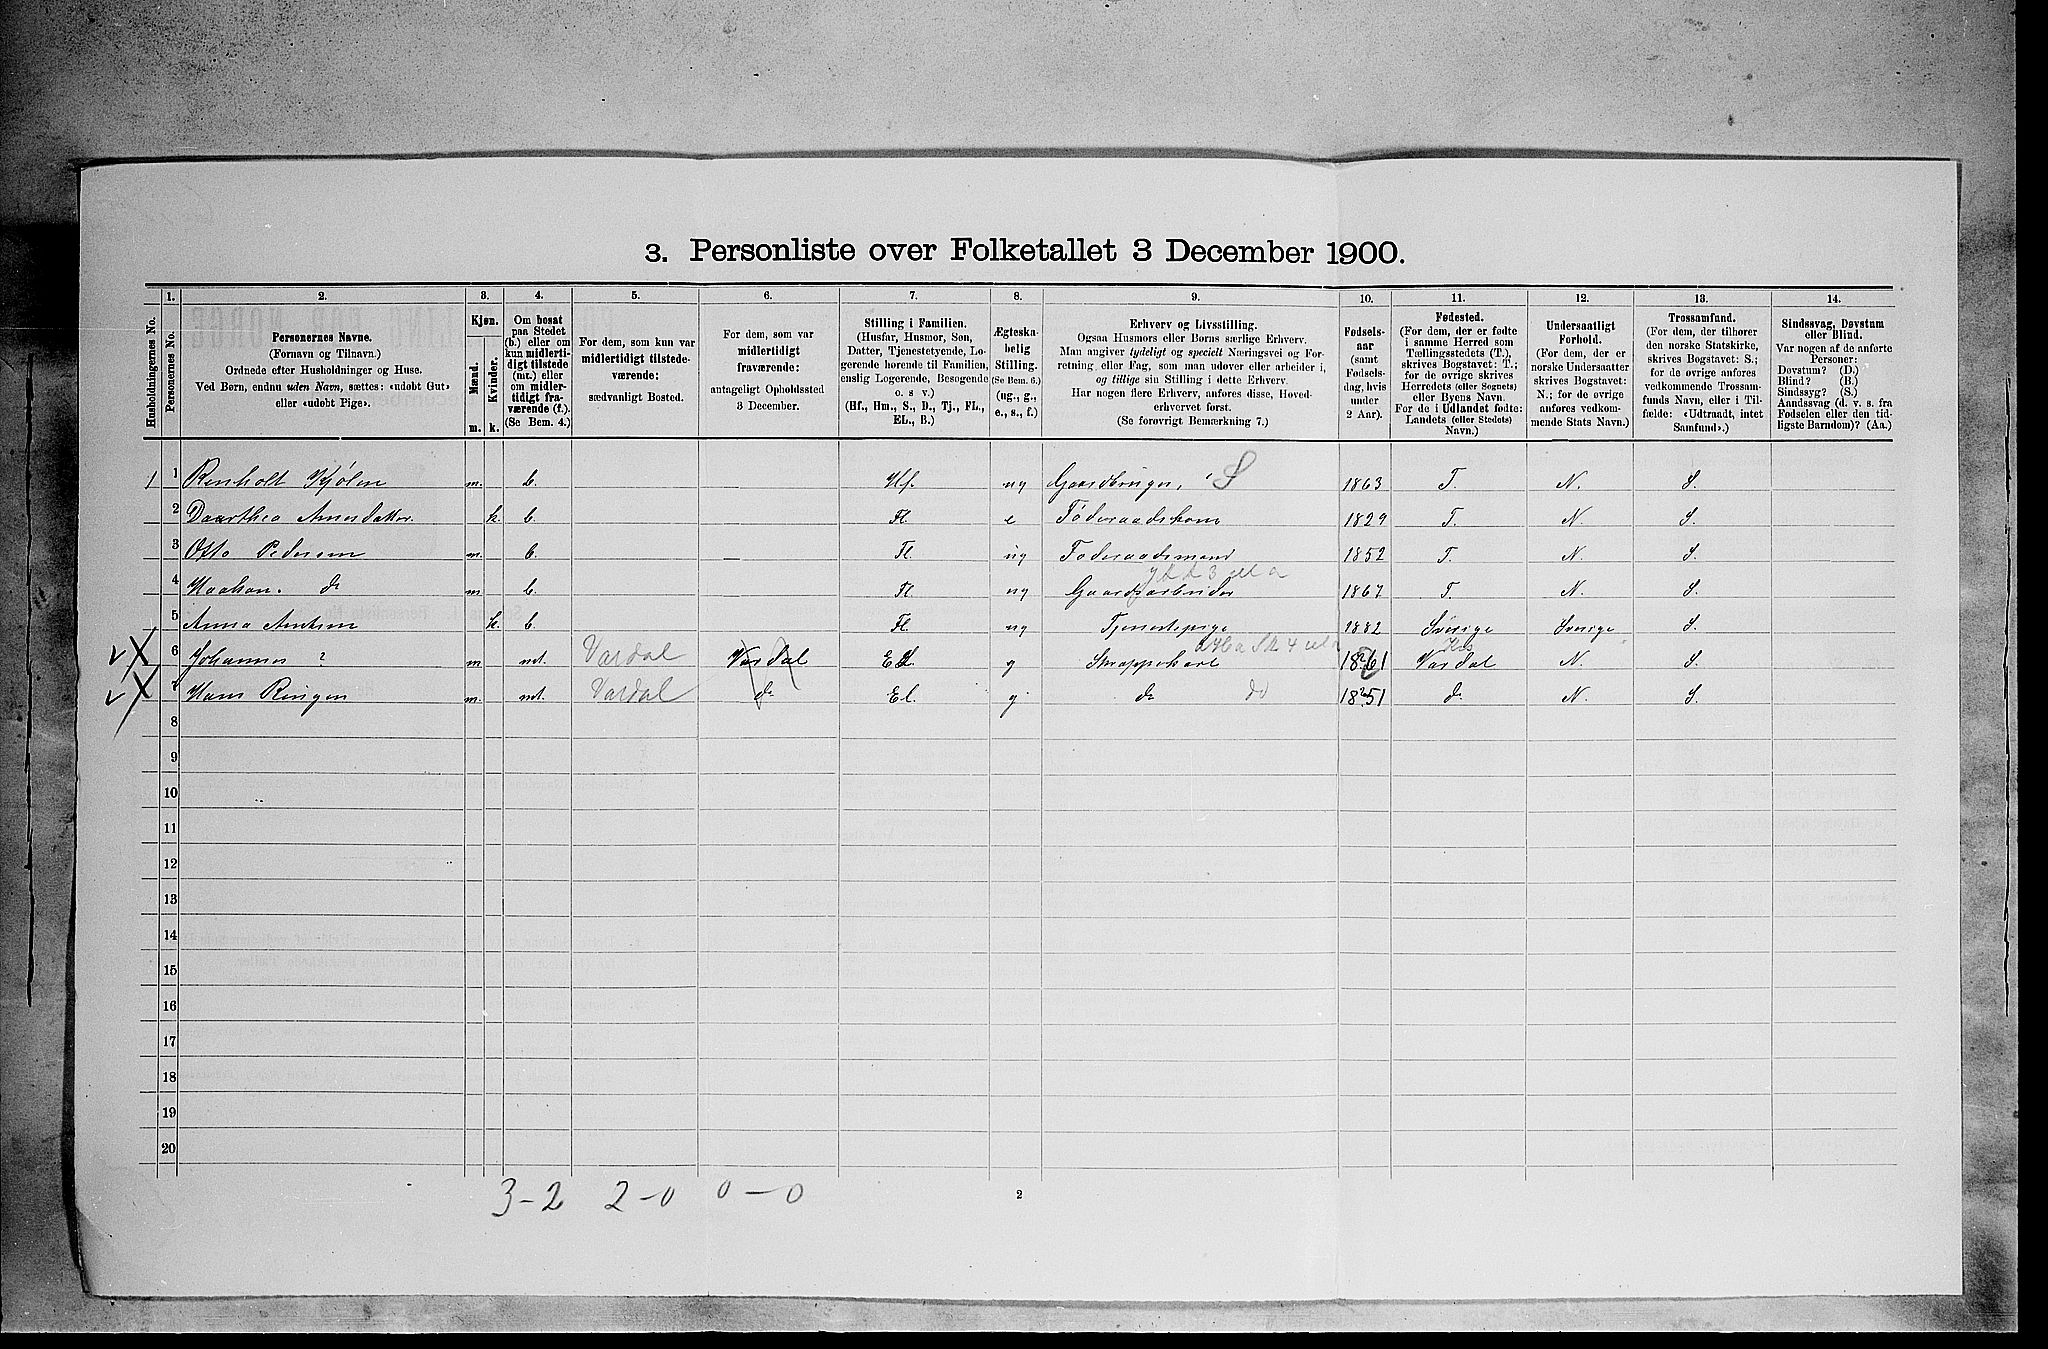 3. Personliste over Folketallet 3 December 1900.
1. 2. 3. 4. 5. 6. 7. 8. 9. 10. 11. 12. 13. 14.
Husholdningernes No.
Personernes No.
Personernes Navne.
(Fornavn og Tilnavn.)
Ordnede efter Husholdninger og Huse.
Ved Børn, endnu uden Navn, sættes: «udøbt Gut»
eller «udøbt Pige».
Kjøn.
Mænd.
Kvinder.
m. k.
Om bosat
paa Stedet
(b.) eller om
kun midlerti-
digt tilstede
(mt.) eller
om midler-
tidigt fra-
værende (f.).
(Se Bem. 4.)
For dem, som kun var
midlertidigt tilstede-
værende:
sædvanligt Bosted.
For dem, som var
midlertidigt
fraværende:
antageligt Opholdssted
3 December.
Stilling i Familien.
(Husfar, Husmor, Søn,
Datter, Tjenestetyende, Lo-
gerende hørende til Familien,
enslig Logerende, Besøgende
o. s v.)
(Hf., Hm., S., D., Tj., FL.,
EL., B.)
Ægteska-
belig
Stilling.
(Se Bem. 6.)
(ug., g.,
e., s., f.)
Erhverv og Livsstilling.
Ogsaa Husmors eller Børns særlige Erhverv.
Man angiver tydeligt og specielt Næringsvei og For-
retning eller Fag, som man udøver eller arbeider i,
og tillige sin Stilling i dette Erhverv.
Har nogen flere Erhverv, anføres disse, Hoved-
erhvervet først.
(Se forøvrigt Bemærkning 7.)
Fødsels-
aar
(samt
Fødsels-
dag, hvis
under
2 Aar).
Fødested.
(For dem, der er fødte
i samme Herred som
Tællingsstedets (T.),
skrives Bogstavet: T.;
for de øvrige skrives
Herredets (eller Sognets)
eller Byens Navn.
For de i Udlandet fødte:
Landets (eller Stedets)
Navn.)
Undersaatligt
Forhold.
(For dem, der er
norske Undersaatter
skrives Bogstavet:
N.; for de øvrige
anføres vedkom-
mende Stats Navn.)
Trossamfund.
(For dem, der tilhører
den norske Statskirke,
skrives Bogstavet: S.;
for de øvrige anføres
vedkommende Trossam-
funds Navn, eller i Til-
fælde: «Udtraadt, intet
Samfund».)
Sindssvag, Døvstum
eller Blind.
Var nogen af de anførte
Personer:
Døvstum? (D.)
Blind? (B.)
Sindssyg? (S.)
Aandssvag (d. v. s. fra
Fødselen eller den tid-
ligste Barndom)? (Aa.)
1 1 Renholt Kjølen m. b. Hf. ug Gaardbruger, S 1863 T. N. S.
2 Daarthea Arnesdatter. k. b. Fl. e Føderaadskone 1829 T. N S.
3 Otto Pedersen m. b. Fl ug Føderaadsmand 1852 T. N S.
4 Haakon. do m b. Fl. ug Gaardsarbeider 1867 T. N. S.
5 Anna k. b. Fl. ug Tjenestepige 1882 Sverige Sverige S.
6 Johannes ? m mt. Vardal Vardal EL g 1861 Vardal N. S.
7 Hans Ringen m. mt. Vardal do El. g do do 1851 do. N. S.
8
9
10
11
12
13
14
15
16
17
18
19
20
3-2 2-0 0-0
2